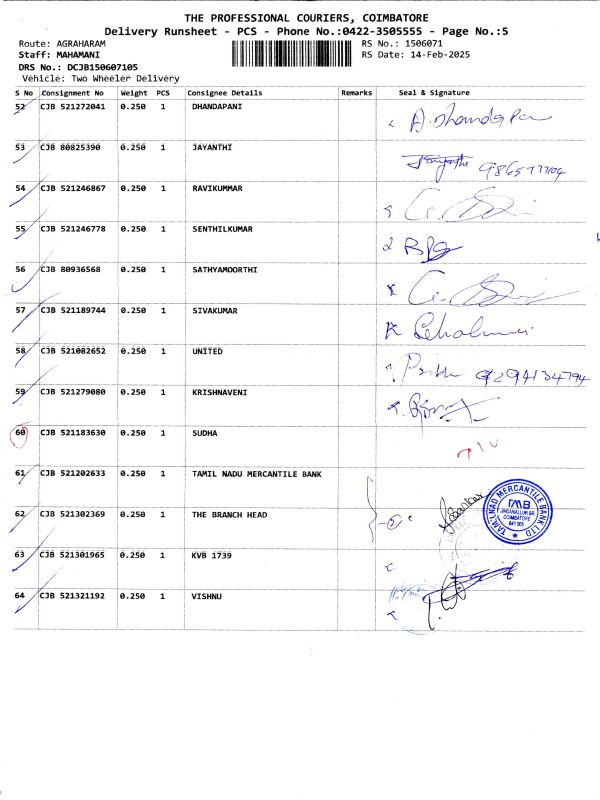 THE PROFESSIONAL COURIERS, COIMBATORE
Delivery Runsheet - PCS - Phone No.:0422-3505555 - Page No.:5
Route: AGRAHARAM RS No.: 1506071
Staff: MAHAMANI RS Date: 14-Feb-2025
DRS No.: DCJB150607105
Vehicle: Two Wheeler Delivery
S No Consignment No Weight PCS Consignee Details Remarks Seal & Signature
52 CJB 521272041 0.250 1 DHANDAPANI
53 CJB 80825390 1 JAYANTHI
54 CJB 521246867 0.250 1 RAVIKUMMAR
55 CJB 521246778 0.250 1 SENTHILKUMAR
56 CJB 80936568 1 SATHYAMOORTHI
57 CJB 521189744 0.250 1 SIVAKUMAR
58 CJB 521082652 0.250 1 UNITED 9294134794
59 CJB 521279080 0.250 1 KRISHNAVENI
60 CJB 521183630 0.250 1 SUDHA
61 CJB 521202633 0.250 1 TAMIL NADU MERCANTILE BANK
TAMILNAD MERCANTILE BANK LTD
TMB
COIMBATORE
641 005
62 CJB 521302369 0.250 1 THE BRANCH HEAD
63 CJB 521301965 0.250 1 KVB 1739
64 CJB 521321192 0.250 1 VISHNU